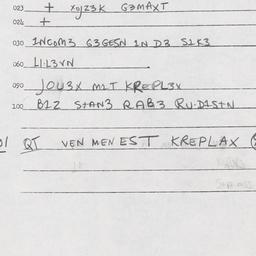 023 + XOJZ3K G3MAXT
026 +
030 INCOM3 G3GESN IN D3 S1K3
060 LI.L3VN
090 JOU3X MIT KREPL3X
100 B1Z STAN3 RAB3 RU.D1STN
QT VEN MEN EST KREPLAX